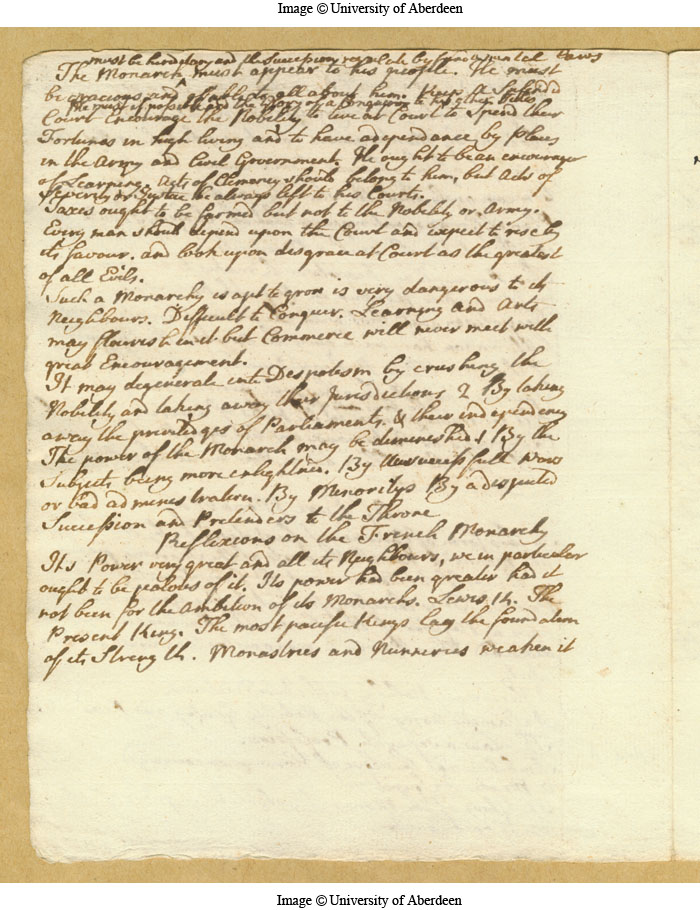 Image © University of Aberdeen
must be hereditary and the Succession regulate by fundamental Laws
The Monarch must appear to his people. He must
be gracious and affable to all about him. Keep a Splended
He must if possible add the glory of a Conqueror to his other
Court Encourage the Nobility to live at Court to Spend their
Fortunes in high living and to have a dependance by Places
in the Army and Civil Government. He ought to be an encourager
of Learning. Acts of Clemency should belong to him, but Acts of
Severity or Justice be always left to his Courts.
Taxes ought to be farmed but not to the Nobility or Army.
Every man should depend upon the Court and expect to rise by
its favour. and look upon disgrace at Court as the greatest
of all Evils.
Such a Monarchy is apt to grow is very dangerous to its
Neighbours. Difficult to Conquer. Learning and Arts
may flourish in it but Commerce will never meet with
great Encouragement.
It may degenerate into Despotism by crushing the
Nobility and taking away their Jurisdictions 2 By taking
away the priviledges of Parliaments. & their independency
The power of the Monarch may be diminished 1 By the
Subjects being more enlightned. By Unsuccessfull wars
or bad administration. By Minoritys By a disputed
Succession and Pretenders to the Throne
Reflexions on the French Monarchy
Its Power very great and all its Neighbours, we in particular
ought to be jealous of it. Its power had been greater had it
not been for the Ambition of its Monarchs. Lewis 14. The
Present King. The most pacifick Kings lay the foundation
of its Strength. Monastries and Nunneries weaken it
Image © University of Aberdeen